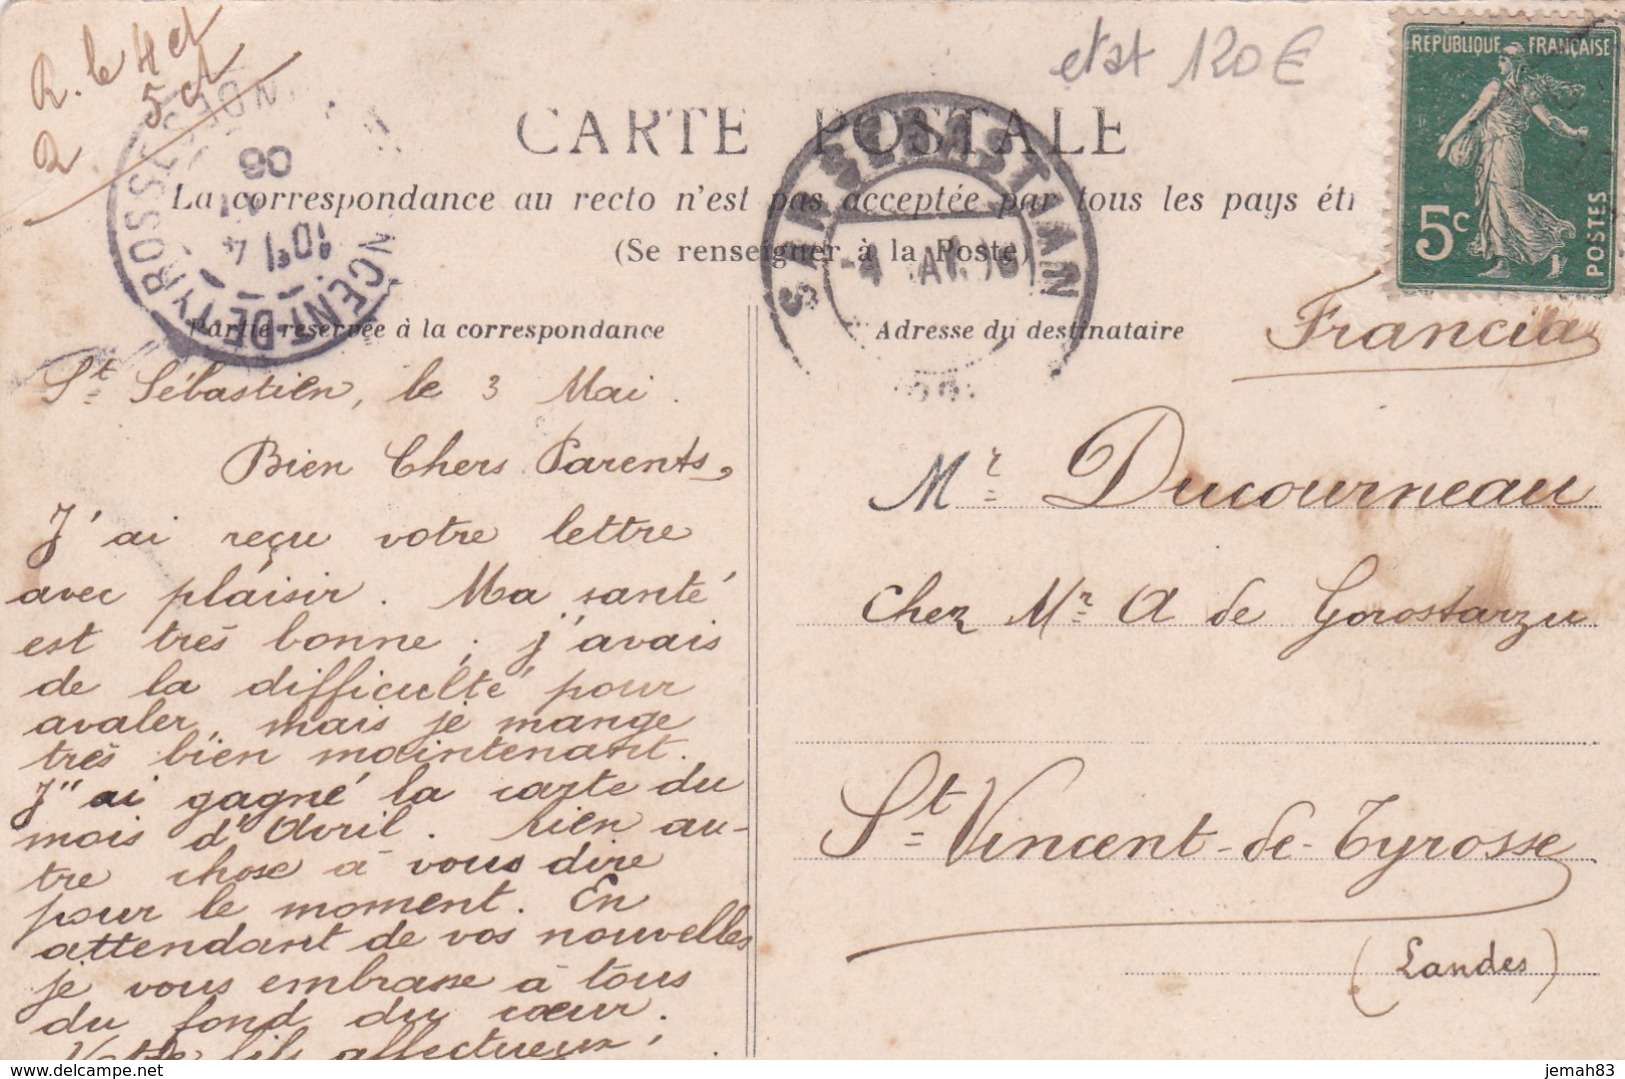 R. le 4 ct
2 5 ct
etat 120 €
REPUBLIQUE FRANÇAISE
5c
POSTES
CARTE POSTALE
La correspondance au recto n'est pas acceptée par tous les pays étr
(Se renseigner à la Poste)
SAN SEBASTIAN
NCENT-DE-TYROSSE
Partie réservée à la correspondance
Adresse du destinataire
Francia
St Sébastien, le 3 Mai.
Bien Chers Parents,
J'ai reçu votre lettre
avec plaisir. Ma santé
est très bonne; j'avais
de la difficulté pour
avaler, mais je mange
très bien maintenant.
J'ai gagné la carte du
mois d'Avril. Rien au-
tre chose à vous dire
pour le moment. En
attendant de vos nouvelles
je vous embrasse à tous
du fond du cœur.
Votre fils affectueux,
Mr Ducourneau
Chez Mr A de Gorostarzu
St Vincent-de-Tyrosse
(Landes)
www.delcampe.net
jemah83